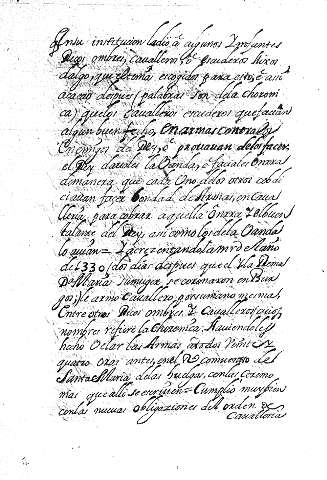 En su institucion la dio á algunos Ynfantes
Ricos ombres, Cavalleros, ô escuderos hixos
dalgo, que tenia escogidos para esto, ê asi
acavo despues (palabras son dela choroni
ca) que los Cavalleros escuderos que facian
algun buen fecho, en armas contra los
Enemigos del Rey, ò provavan delos facer,
el Rey davales la Vanda, ê faciales onrra
demanera que cada Uno delos otros cobdi
ciavan facer bondad de Armas, en Cava
lleria, para cobrar aquella Onrra, y el buen
talante del Rey, asi como los dela Vanda
lo avian = Y acrezentandola mro el año
de 1330 (dos dias despues que el y la Reina
Dª Maria su muger se coronaron en Bur
gos) le armó Cavallero, por su mano mesma
Entre otros Ricos ombres, y Cavalleros, cuios
nombres refiere la Choronica, Haviendoles
hecho velar las Armas, atodos Veinte y
quatro oras antes, en el Rl comuento de
Santa Maria delas huelgas, con las ceremo
nias que alli se escriuen = Cumplio muy bien
con las nuevas obligaciones del orden de
Cavalleria